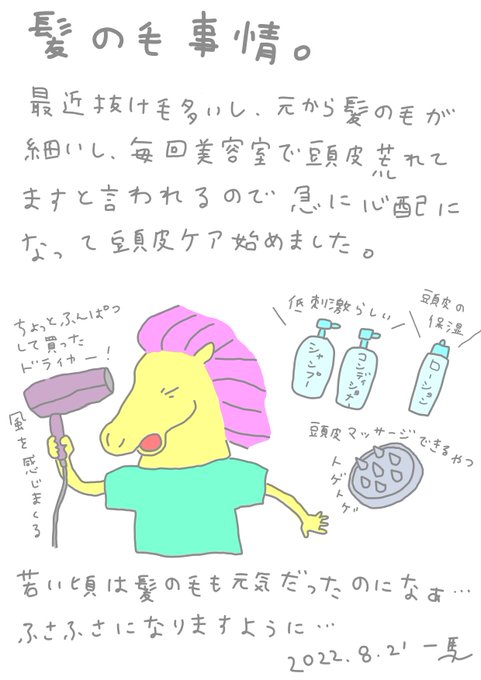 髪の毛事情。
最近抜け毛多いし、元から髪の毛が
細いし、毎回美容室で頭皮荒れて
ますと言われるので急に心配に
なって頭皮ケア始めました。
ちょっとふんぱつ
して買った
ドライヤー!
風を感じまくる
低刺激らしい
シャンプー
コンディショナー
頭皮の
保湿
ローション
頭皮マッサージできるやつ
トゲトゲ
若い頃は髪の毛も元気だったのになぁ…
ふさふさになりますように…
2022.8.21 一馬